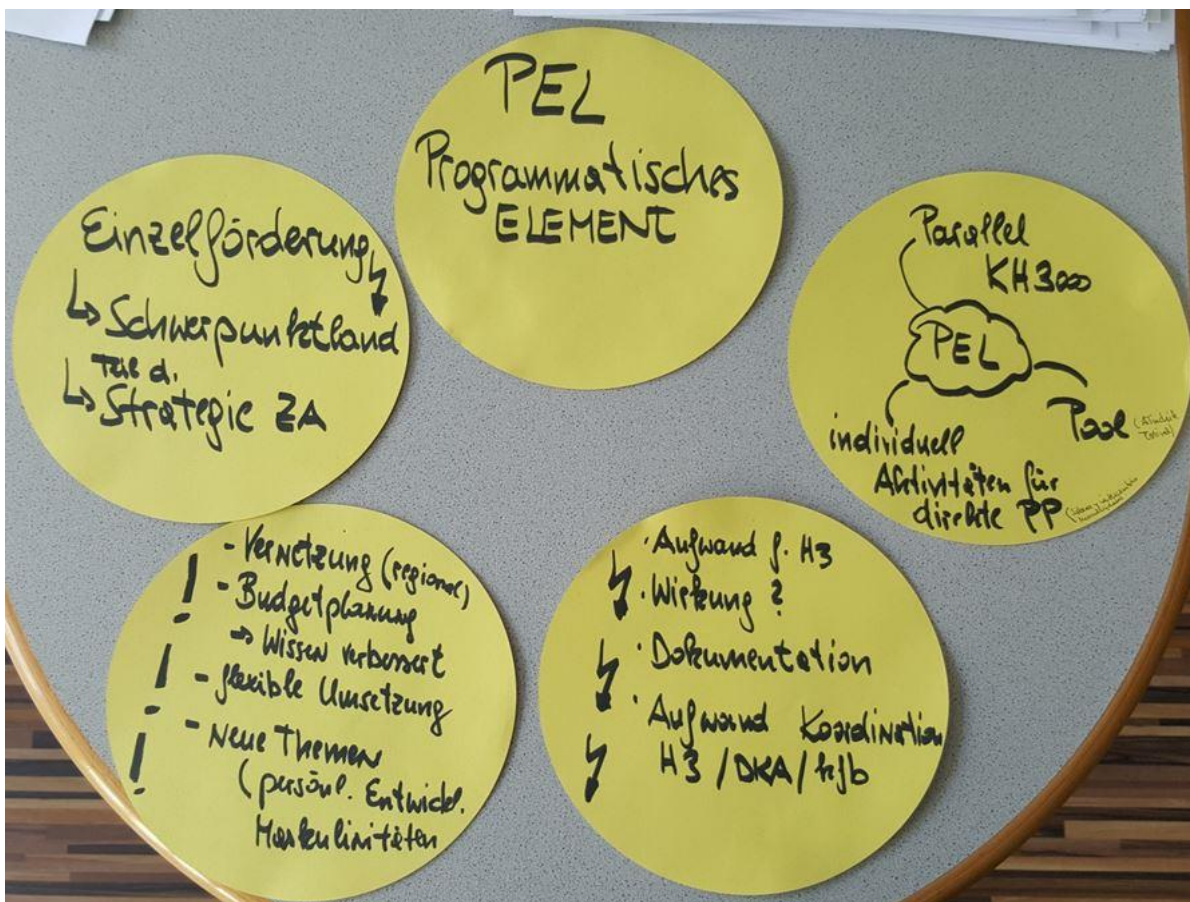 PEL
Programmatisches
ELEMENT
Einzelförderung
↳ Schwerpunktland
Teil d.
↳ Strategie ZA
Parallel
KH3000
PEL
Pool
individuell
Aktivitäten für
direkte PP
- Vernetzung (regional)
- Budgetplanung
→ Wissen verbessert
- flexible Umsetzung
- Neue Themen
(persönl. Entwickl.
Maskulinitäten
! ! !
· Aufwand f. H3
· Wirkung ?
· Dokumentation
· Aufwand Koordination
H3 / DKA / kfb